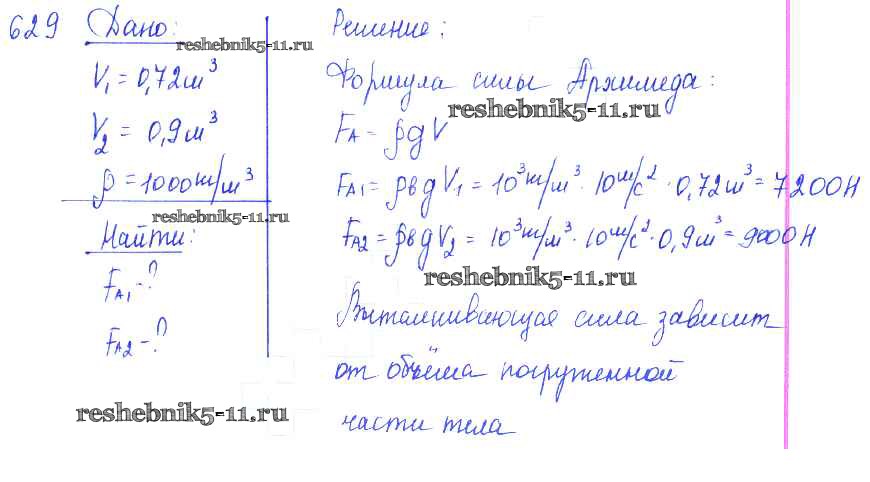 629 Дано:
reshebnik5-11.ru
V₁ = 0,72 м³
V₂ = 0,9 м³
ρ = 1000 кг/м³
reshebnik5-11.ru
Найти:
FA₁ - ?
FA2 - ?
reshebnik5-11.ru
Решение:
Формула силы Архимеда:
reshebnik5-11.ru
FA = ρgV
FA1 = ρвgV₁ = 10³ кг/м³ · 10 м/с² · 0,72 м³ = 7200 Н
FA2 = ρвgV₂ = 10³ кг/м³ · 10 м/с² · 0,9 м³ = 9000 Н
reshebnik5-11.ru
Выталкивающая сила зависит
от объёма погруженной
части тела